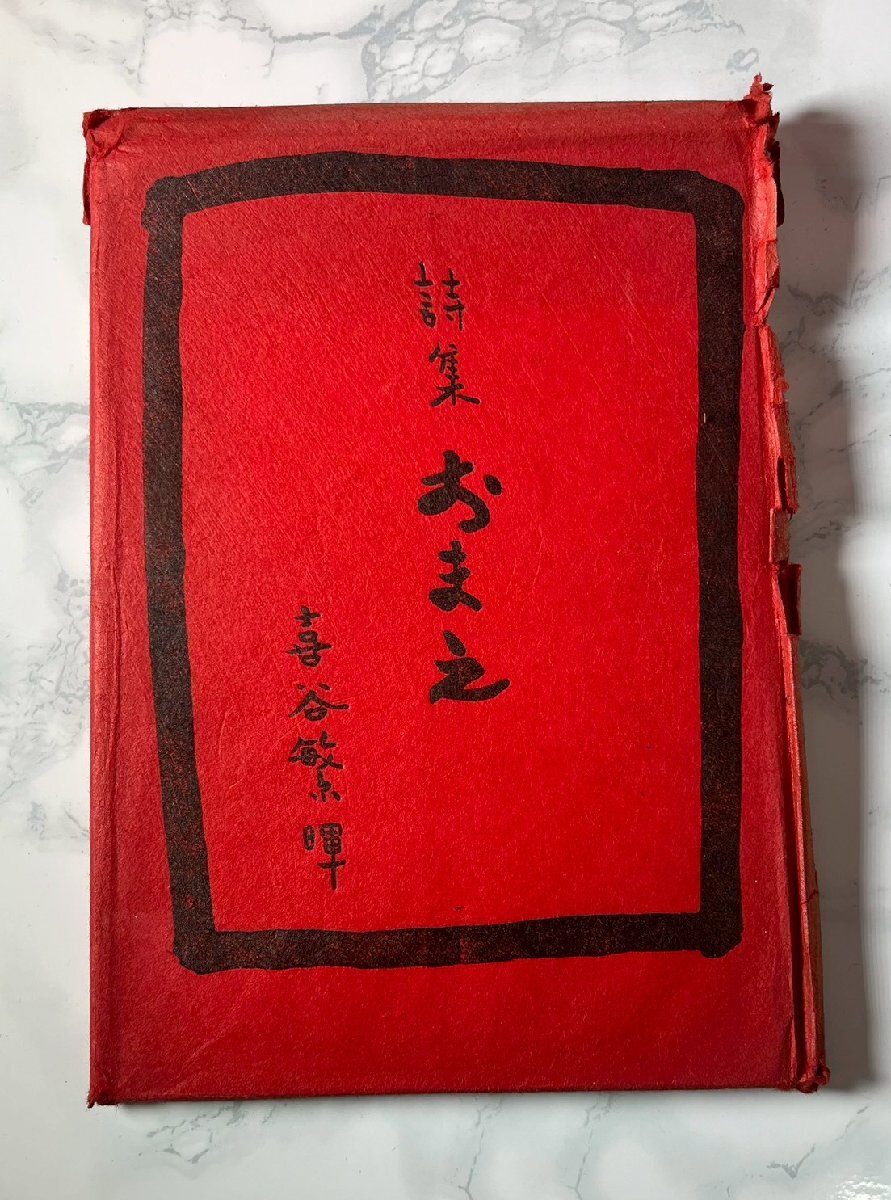 詩集 おまえ
喜谷繁暉